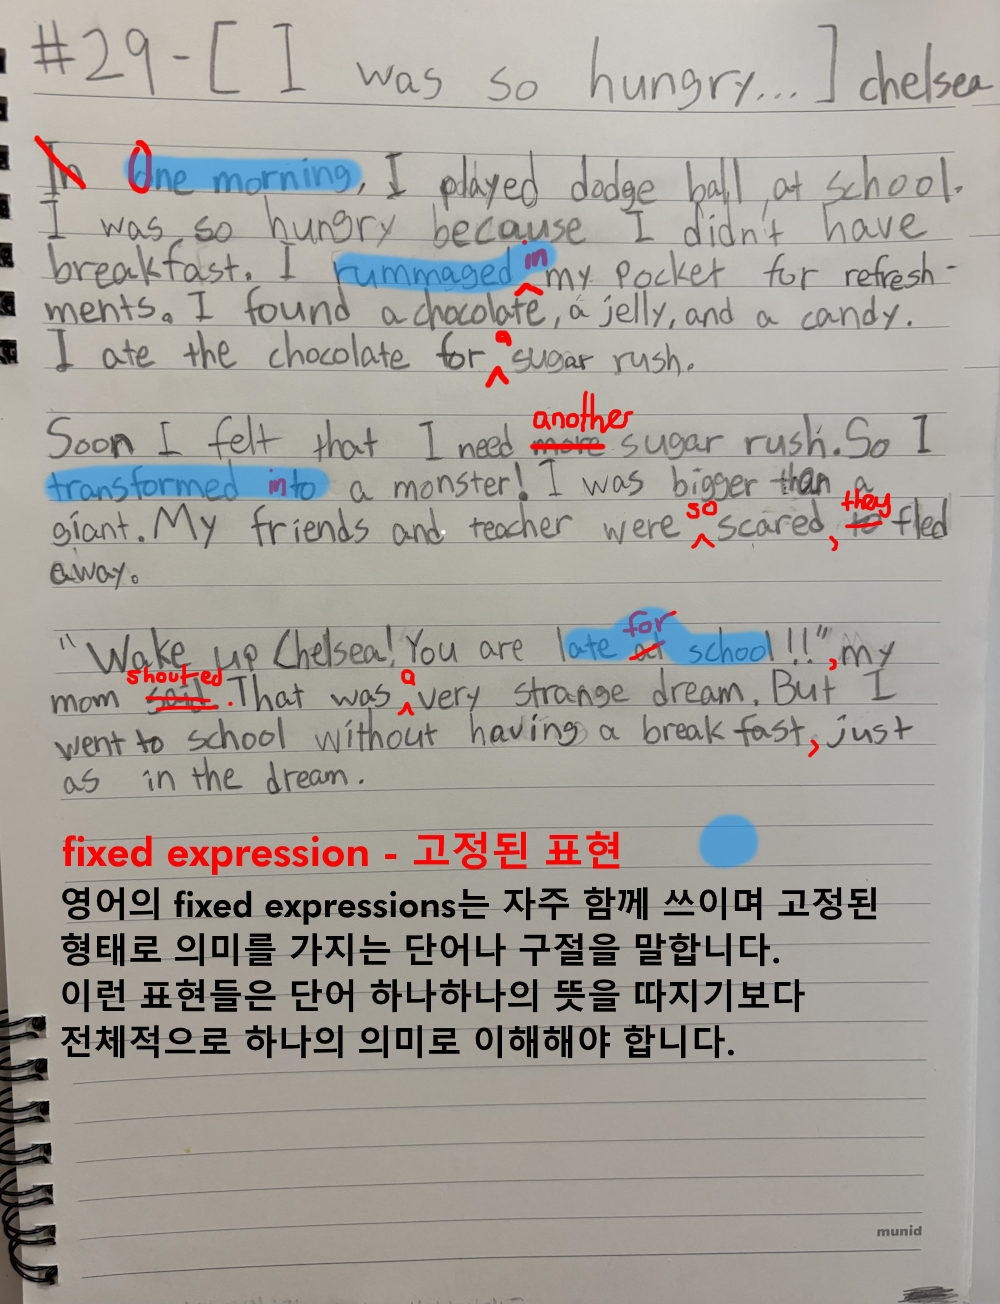 #29 - [ I was so hungry... ] chelsea
In One morning, I played dodge ball at school.
I was so hungry because I didn't have
breakfast. I rummaged in my pocket for refresh-
ments. I found a chocolate, a jelly, and a candy.
I ate the chocolate for a sugar rush.
another
Soon I felt that I need more sugar rush. So I
transformed into a monster! I was bigger than a
giant. My friends and teacher were so scared, to they fled
away.
"Wake up Chelsea! You are late at for school!!", my
shouted
mom said. That was a very strange dream. But I
went to school without having a breakfast, just
as in the dream.
fixed expression - 고정된 표현
영어의 fixed expressions는 자주 함께 쓰이며 고정된
형태로 의미를 가지는 단어나 구절을 말합니다.
이런 표현들은 단어 하나하나의 뜻을 따지기보다
전체적으로 하나의 의미로 이해해야 합니다.
munid